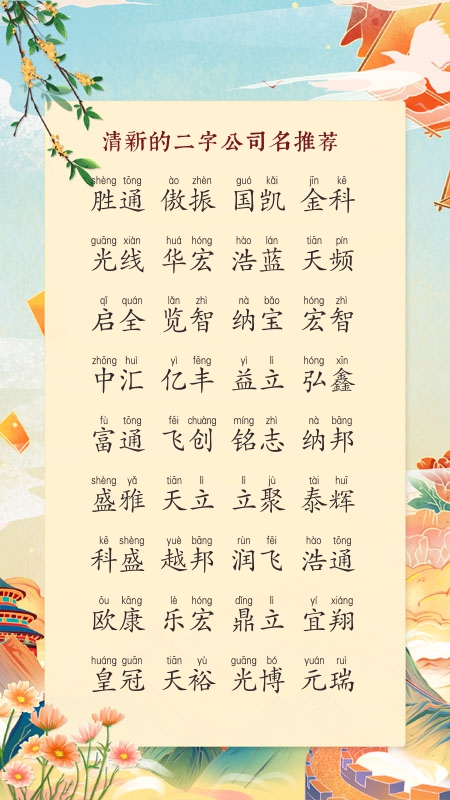 清新的二字公司名推荐
shèng tōng ào zhèn guó kǎi jīn kē
胜通 傲振 国凯 金科
guāng xiàn huá hóng hào lán tiān pín
光线 华宏 浩蓝 天频
qǐ quán lǎn zhì nà bǎo hóng zhì
启全 览智 纳宝 宏智
zhōng huì yì fēng yì lì hóng xīn
中汇 亿丰 益立 弘鑫
fù tōng fēi chuàng míng zhì nà bāng
富通 飞创 铭志 纳邦
shèng yǎ tiān lì lì jù tài huī
盛雅 天立 立聚 泰辉
kē shèng yuè bāng rùn fēi hào tōng
科盛 越邦 润飞 浩通
ōu kāng lè hóng dǐng lì yí xiáng
欧康 乐宏 鼎立 宜翔
huáng guān tiān yù guāng bó yuán ruì
皇冠 天裕 光博 元瑞